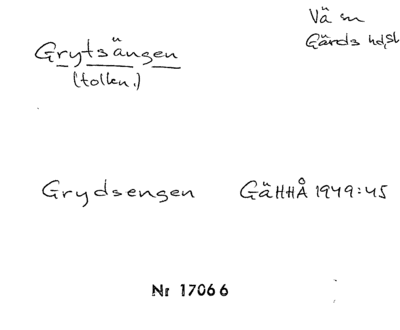 Vä sn
Gärds hd, Sk
Grytsängen
(tolkn.)
Grydsengen GäHHÅ 1949:45
Nr 17066